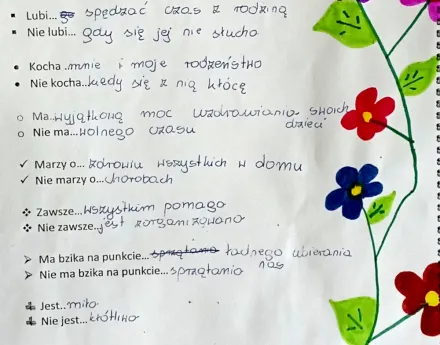 Lubi... spędzać czas z rodziną
Nie lubi... gdy się jej nie słucha
Kocha..mnie i moje rodzeństwo
Nie kocha..kiedy się z nią kłócę
Ma..wyjątkową moc uzdrawiania swoich
dzieci
Nie ma...wolnego czasu
Marzy o... zdrowiu wszystkich w domu
Nie marzy o...chorobach
Zawsze...wszystkim pomaga
Nie zawsze..jest zorganizowana
Ma bzika na punkcie... ładnego ubierania
nas
Nie ma bzika na punkcie...sprzątania
Jest..miła
Nie jest...kłótliwa